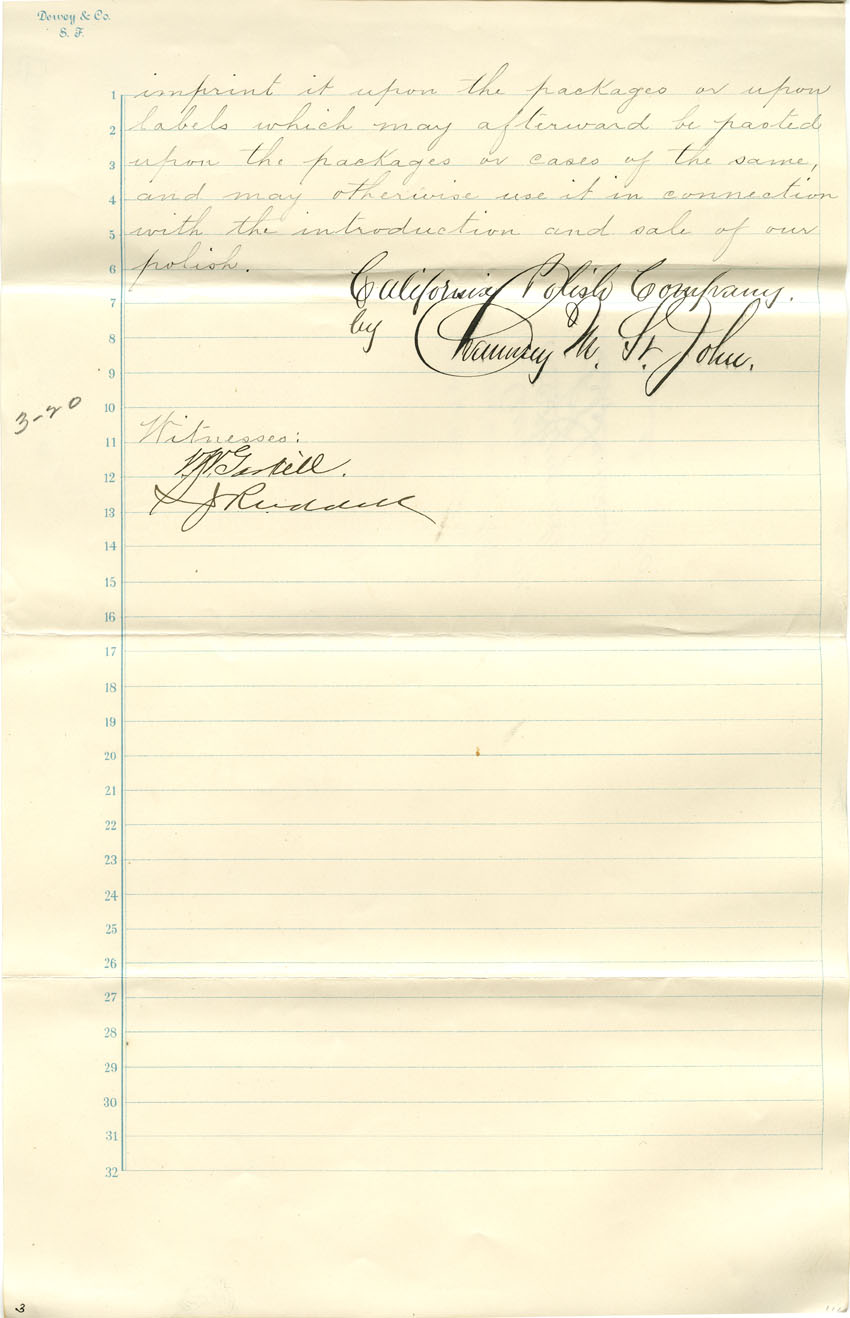 Dewey & Co.
S. F.
1 imprint it upon the packages or upon
2 labels which may afterward be pasted
3 upon the packages or cases of the same,
4 and may otherwise use it in connection
5 with the introduction and sale of our
6 polish.
California Polish Company.
7
by Chauncey M. St. John.
8
9
3-20
10
11 Witnesses:
12
13
14
15
16
17
18
19
20
21
22
23
24
25
26
27
28
29
30
31
32
3